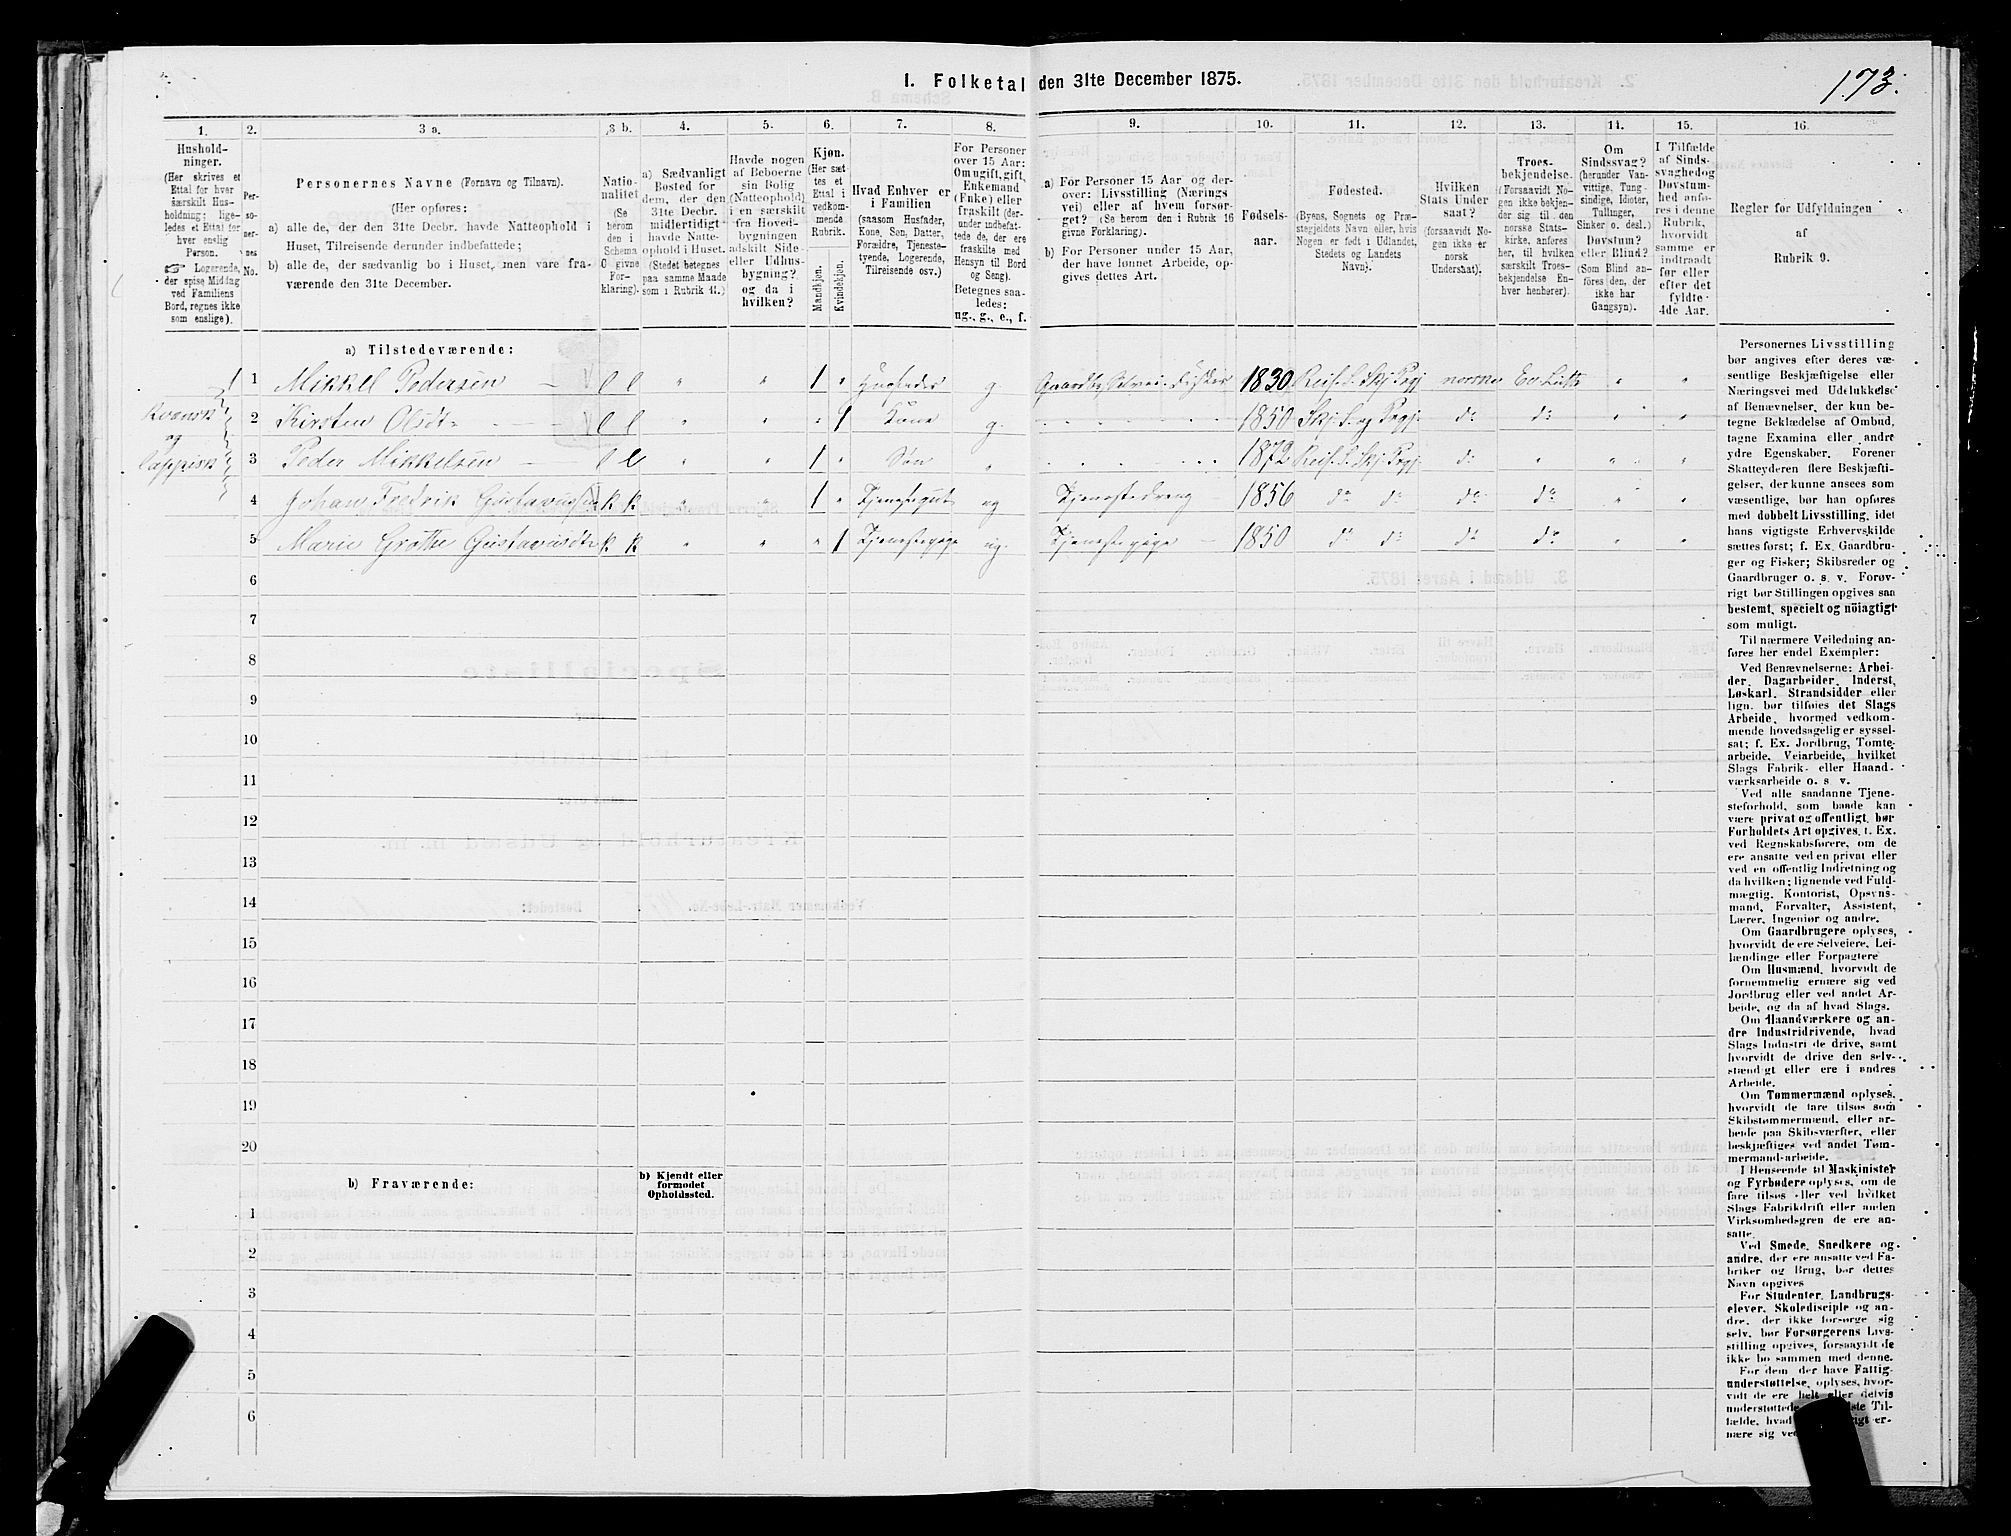 1. Folketal den 31te December 1875.
173.
1.
2.
3 a.
3 b.
4.
5.
6.
7.
8.
9.
10.
11.
12.
13.
14.
15.
16.
Hushold-
ninger.
(Her skrives et
Ettal for hver
særskilt Hus-
holdning; lige-
ledes et Ettal for
hver enslig
Person.
☞ Logerende,
der spise Middag
ved Familiens
Bord, regnes ikke
som enslige).
Per-
so-
ner-
nes
No.
Personernes Navne (Fornavn og Tilnavn).
(Her opføres:
a) alle de, der den 31te Decbr. havde Natteophold i
Huset, Tilreisende derunder indbefattede;
b) alle de, der sædvanlig bo i Huset, men vare fra-
værende den 31te December.
Natio-
nalitet
(Se
herom
den i
Schema
C givne
For-
klaring).
a) Sædvanligt
Bosted for
dem, der den
31te Decbr.
midlertidigt
havde Natte-
ophold i Huset.
(Stedet betegnes
paa samme Maade
som i Rubrik 11.)
Havde nogen
af Beboerne
sin Bolig
(Natteophold)
i en særskilt
fra Hoved-
bygningen
adskilt Side-
eller Udhus-
bygning?
og da i
hvilken?
Kjøn.
(Her sæt-
tes et
Ettal i
vedkom-
mende
Rubrik.
Mandkjøn.
Kvindekjøn.
Hvad Enhver er
i Familien
(saasom Husfader,
Kone, Søn, Datter,
Forældre, Tjeneste-
tyende, Logerende,
Tilreisende osv.)
For Personer
over 15 Aar:
Om ugift, gift,
Enkemand
(Enke) eller
fraskilt (der-
under indbefat-
tede de, der ere
fraskilte med
Hensyn til Bord
og Seng).
Betegnes saa-
ledes:
ug., g., e., f.
a) For Personer 15 Aar og der-
over: Livsstilling (Nærings-
vei) eller af hvem forsør-
get? (Se herom den i Rubrik 16
givne Forklaring).
b) For Personer under 15 Aar,
der have lønnet Arbeide, op-
gives dettes Art.
Fødsels-
aar.
Fødested.
(Byens, Sognets og Præ-
stegjeldets Navn eller, hvis
Nogen er født i Udlandet,
Stedets og Landets
Navn).
Hvilken
Stats Under
saat?
(forsaavidt No-
gen ikke er
norsk
Undersaat).
Troes-
bekjendelse.
(Forsaavidt No-
gen ikke bekjen-
der sig til den
norske Stats-
kirke, anføres
her, til hvilken
særskilt Troes-
bekjendelse En-
hver henhører).
Om
Sindssvag?
(herunder Van-
vittige, Tung-
sindige, Idioter,
Tullinger,
Sinker o. desl.)
Døvstum?
eller Blind?
(Som Blind an-
føres den, der
ikke har
Gangsyn).
I Tilfælde
af Sinds-
svaghed og
Døvstum-
hed anfø-
res i denne
Rubrik,
hvorvidt
samme er
indtraadt
før eller
efter det
fyldte
4de Aar.
Regler for Udfyldningen
af
Rubrik 9.
a) Tilstedeværende:
1 1 Mikkel Pedersen l l " " 1 " Husfader g. Gaardbr. Selveier Fisker 1830 Reis. S. Skj. Prgj norske Ev. Luth " "
Kvænsk
2 Kirsten Olsdtr l l " " " 1 Kone g. 1850 Skj. S. og Prgj. do do " "
og
lappisk
3 Peder Mikkelsen l l " " 1 " Søn " 1872 Reis. S. Skj. Prgj. do " " "
4 Johan Fredrik Gustavussen k k " " 1 " Tjenestegut ug Tjenestedreng 1856 do do do do " "
5 Marie Grethe Gustavusdtr k k " " " 1 Tjenestepige ug. Tjenestepige 1850 do do do do " "
6
7
8
9
10
11
12
13
14
15
16
17
18
19
20
b) Fraværende:
b) Kjendt eller
formodet
Opholdssted.
1
2
3
4
5
6
Personernes Livsstilling
bør angives efter deres væ-
sentlige Beskjæftigelse eller
Næringsvei med Udelukkelse
af Benævnelser, der kun be-
tegne Beklædelse af Ombud,
tagne Examina eller andre
ydre Egenskaber. Forener
Skatteyderen flere Beskjæfti-
gelser, der kunne ansees som
væsentlige, bør han opføres
med dobbelt Livsstilling, idet
hans vigtigste Erhvervskilde
sættes først; f. Ex. Gaardbru-
ger og Fisker; Skibsreder og
Gaardbruger o. s. v. Forøv-
rigt bør Stillingen opgives saa
bestemt, specielt og nöiagtigt
som muligt.
Til nærmere Veiledning an-
føres her endel Exempler:
Ved Benævnelserne: Arbei-
der, Dagarbeider, Inderst,
Løskarl, Strandsidder eller
lign. bør tilføies det Slags
Arbeide, hvormed vedkom-
mende hovedsagelig er syssel-
sat; f. Ex. Jordbrug, Tomte-
arbeide, Veiarbeide, hvilket
Slags Fabrik- eller Haand-
værksarbeide o. s. v.
Ved alle saadanne Tjene-
steforhold, som baade kan
være privat og offentligt, bør
Forholdets Art opgives, t. Ex.
ved Regnskabsførere, om de
ere ansatte ved en privat eller
ved en offentlig Indretning og
da hvilken; lignende ved Fuld-
mægtig, Kontorist, Opsyns-
mand, Forvalter, Assistent,
Lærer, Ingeniør og andre.
Om Gaardbrugere oplyses,
hvorvidt de ere Selveiere, Lei-
lændinge eller Forpagtere
Om Husmænd, hvorvidt de
fornemmelig ernære sig ved
Jordbrug eller ved andet Ar-
beide, og da af hvad Slags.
Om Haandværkere og an-
dre Industridrivende, hvad
Slags Industri de drive, samt
hvorvidt de drive den selv-
stændigt eller ere i andres
Arbeide.
Om Tømmermænd oplyses,
hvorvidt de fare tilsøs som
Skibstømmermænd, eller ar-
beide paa Skibsværfter, eller
beskjæftiges ved andet Tøm-
mermand-arbeide.
I Henseende til Maskinister
og Fyrbødere oplyses, om de
fare tilsøs eller ved hvilket
Slags Fabrikdrift eller anden
Virksomhedsgren de ere an-
satte.
Ved Smede, Snedkere og
andre, der ere ansatte ved Fa-
briker og Brug, bør dettes
Navn opgives
For Studenter, Landbrugs-
elever, Skoledisciple og an-
dre, der ikke forsørge sig
selv, bør Forsørgerens Livs-
stilling opgives, forsaavidt de
ikke bo sammen med denne.
For dem, der have Fattig-
understøttelse, oplyses, hvor-
vidt de ere helt eller delvis
understøttede